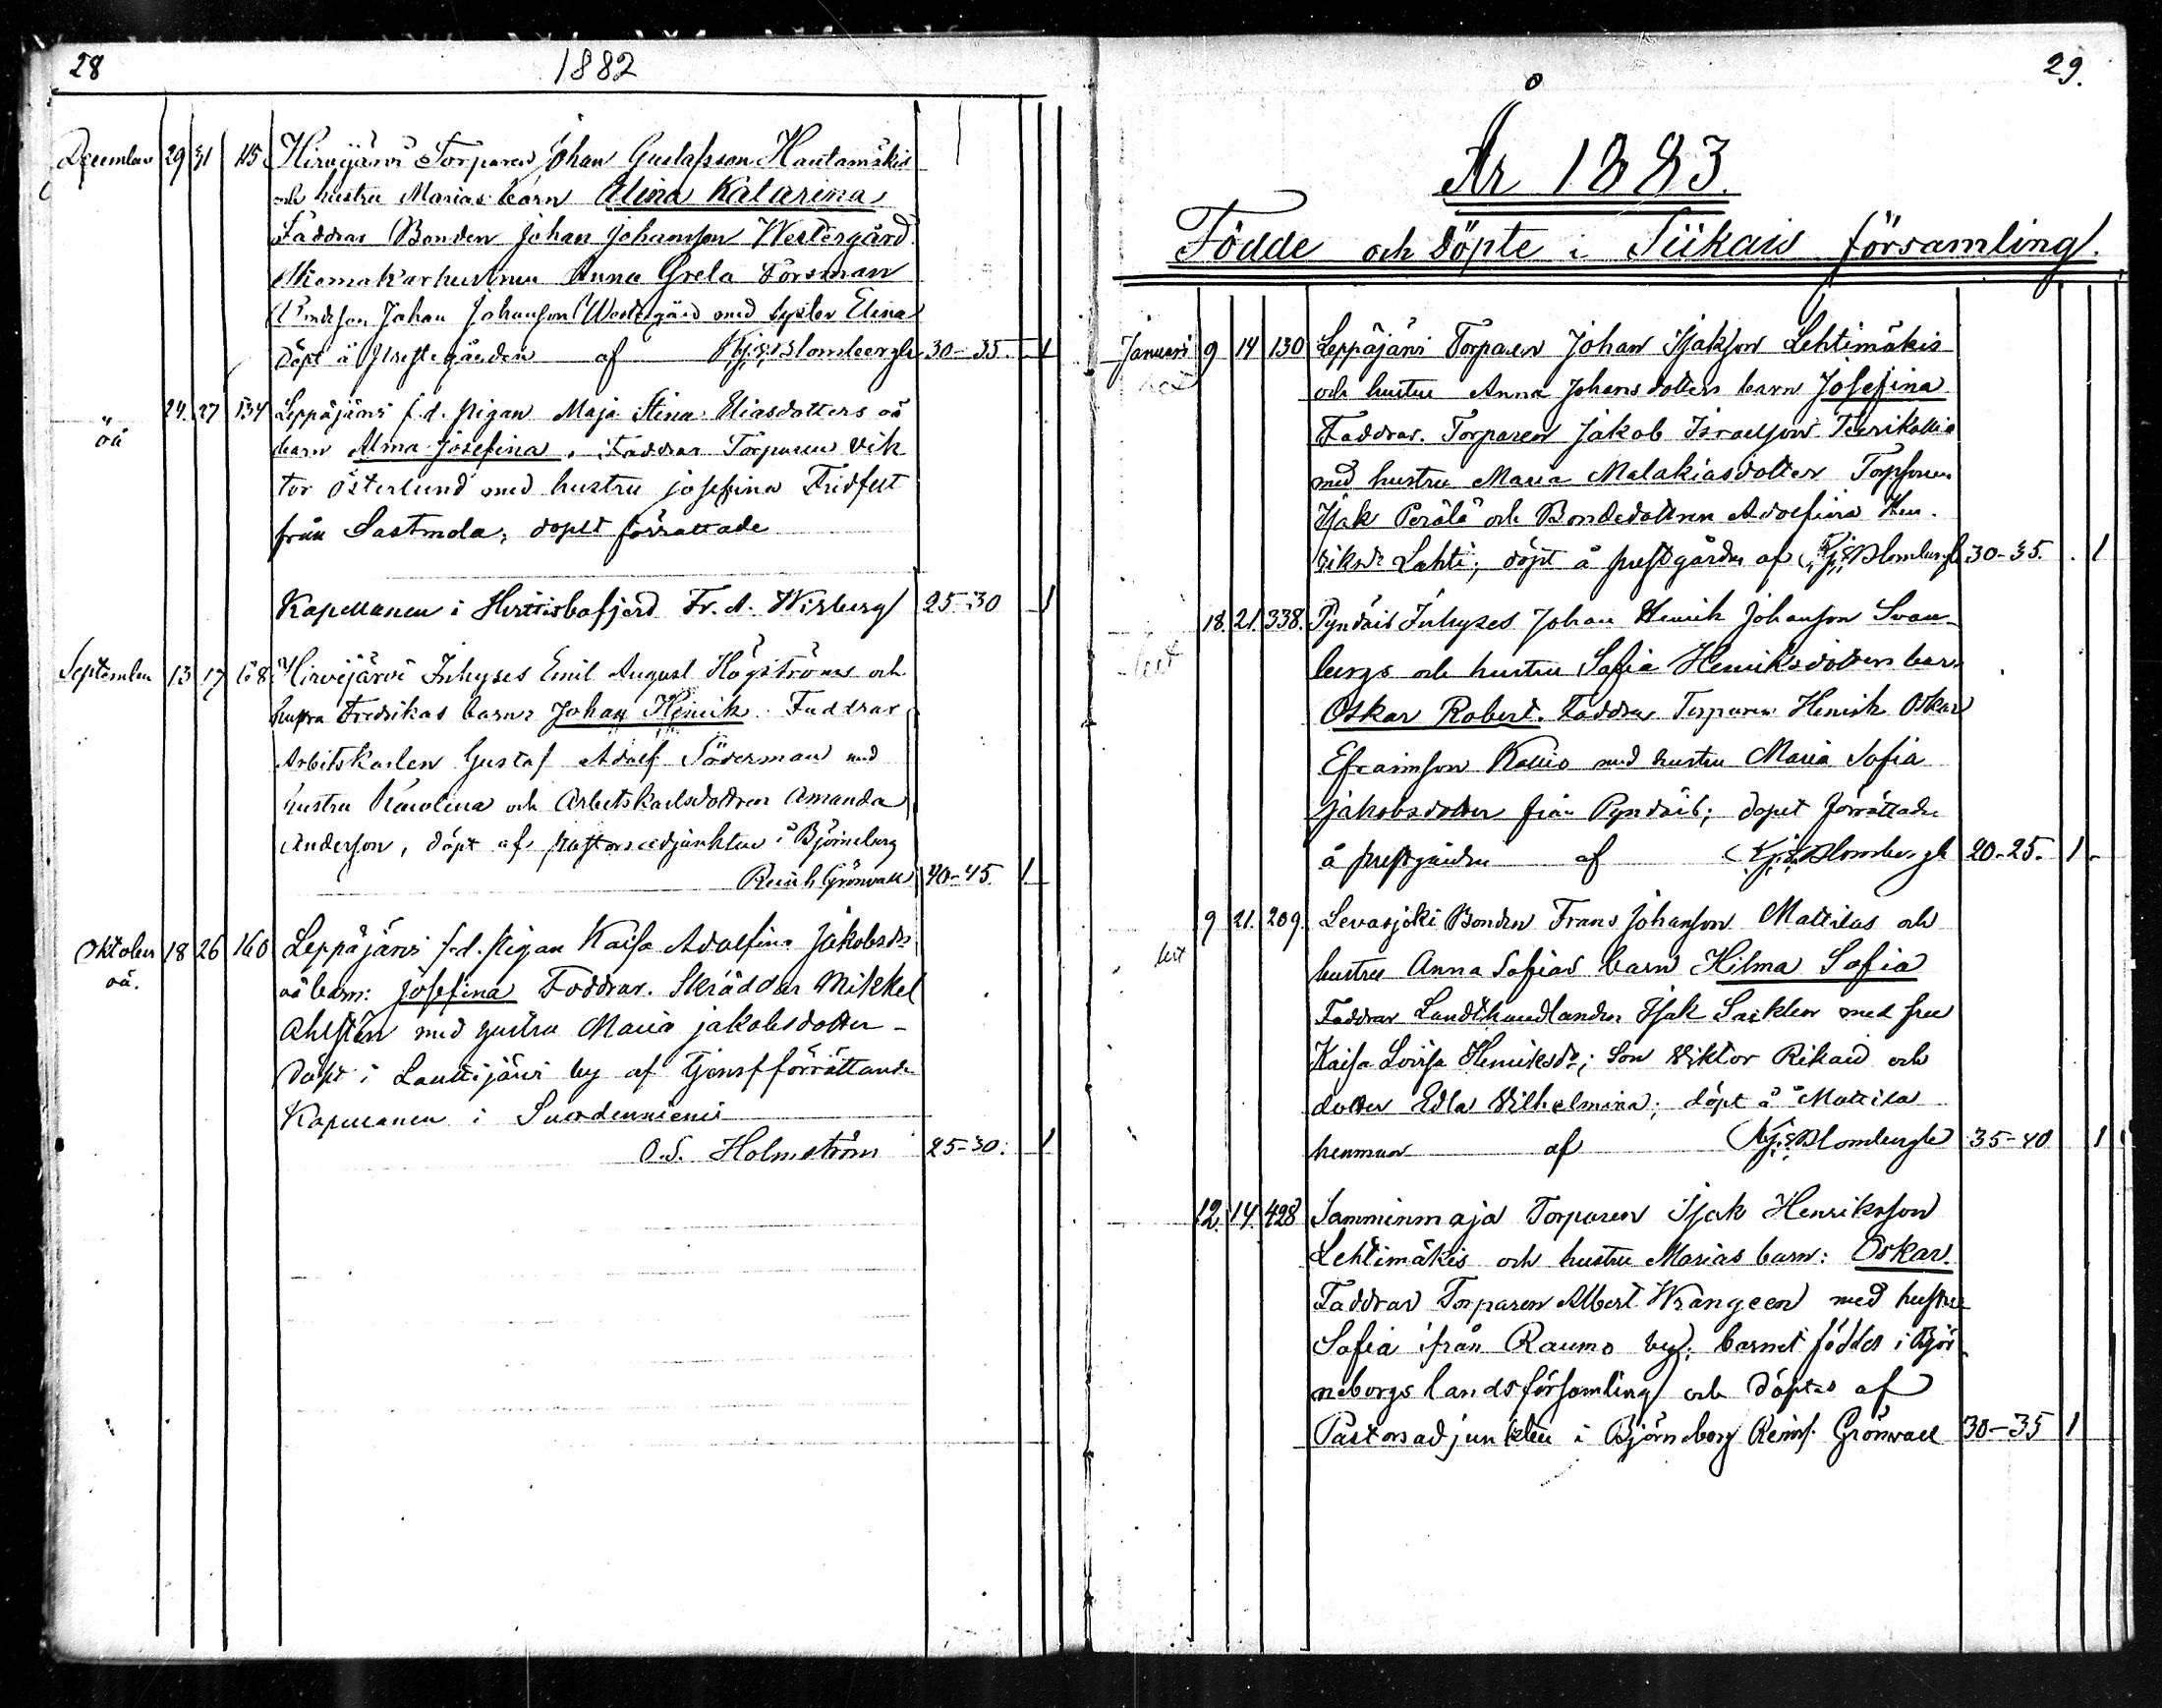 28
1882
December 29 31 115 Hirvijärvi Torparen Johan Gustafsson Hautamäkis
och hustru Marias barn Elina Katarina
Faddrar Bonden Johan Johansson Westergård
Skomakarhustrun Anna Greta Forsman
Bondeson Johan Johansson Westergård med syster Elina
döpt å Prestegården af Kj. S. Blombergh 30-35. 1
" 24. 27 134 Leppäjärvi f.d. pigan Maja Stina Eliasdotters oä
oä barn Alma Josefina. Faddrar Torparen Vik
tor Österlund med hustru Josefina Fridfelt
från Sastmola; dopet förrättade
Kapellanen i Hvittisbofjerd Fr. A. Wisberg 25-30 1
September 13 17 158 Hirvijärvi Inhyses Emil August Högströms och
hustru Fredrikas barn: Johan Henrik. Faddrar
Arbetskarlen Gustaf Adolf Söderman med
hustru Karolina och Arbetskarlsdottren Amanda
Anderson, döpt af pastorsadjunkten i Björneborg
Reinh Grönvall 40-45. 1
Oktober 18 26 160 Leppäjärvi f.d. pigan Kaisa Adolfina Jakobsdrs
oä. oä barn: Josefina Faddrar. Skräddar Mikkel
Ahlstén med hustru Maria Jakobsdotter -
Döpt i Lauttijärvi by af tjenstförrättande
Kapellanen i Suodenniemi
O.S. Holmström 25-30. 1
29.
År 1883.
Födde och döpte i Siikais församling.
Januari 9 14 130 Leppäjärvi Torparen Johan Isakson Lehtimäkis
och hustru Anna Johansdotters barn Josefina
Faddrar. Torparen Jakob Israelson Teerikallio
med hustru Maria Malakiasdotter Torpsonen
Isak Perälä och Bondedottren Adolfina Hen-
riksdr Lahti; döpt å prestgården af Kj. S. Blombergh 30-35. 1
18. 21. 338. Pyndäis Inhyses Johan Henrik Johanson Svan-
bergs och hustru Sofia Henriksdotters barn
Oskar Robert. Faddrar Torparen Henrik Oskar
Efraimson Kallio med hustru Maria Sofia
Jakobsdotter från Pyndäis; dopet förrättades
å prestgården af Kj. S. Blombergh 20-25. 1
9 21. 209. Levasjoki Bonden Frans Johanson Mattilas och
hustru Anna Sofias barn Hilma Sofia
Faddrar Landthandlanden Isak Saxlen med fru
Kaisa Lovisa Henriksdr; Son Viktor Rikard och
dotter Edla Vilhelmina; döpt å Mattila
hemman af Kj. S. Blombergh 35-40 1
12. 14. 428 Samminmaja Torparen Isak Henriksson
Lehtimäkis och hustru Marias barn: Oskar.
Faddrar Torparen Albert Wrangeen med hustru
Sofia ifrån Raumo by; barnet föddes i Björ-
neborgs landsförsamling och döptes af
Pastorsadjunkten i Björneborg Reinh. Grönvall 30-35 1